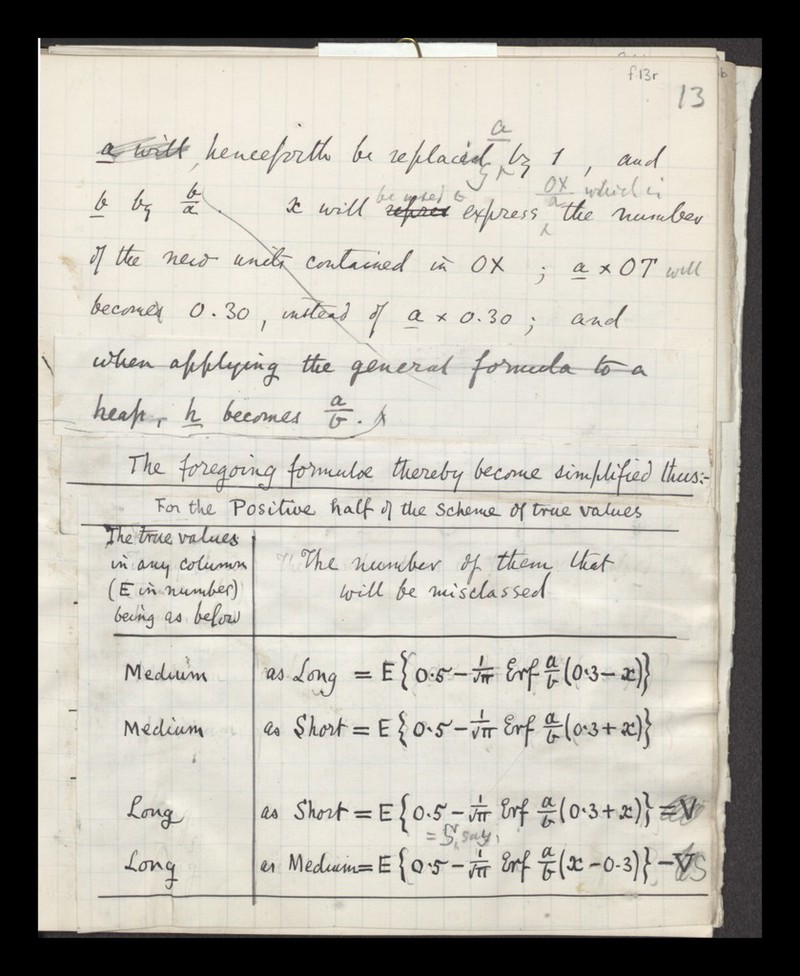 f13r
13
a will henceforth be replaced by 1, and
a
b by b/a. x will be used to repres express OX/a which is the number
of the new units contained in OX ; a × OT will
becomes 0.30, instead of a × 0.30 ; and
when applying the general formula to a
heap, h becomes a/b.
The foregoing formulae thereby become simplified thus:-
For the Positive half of the Scheme of true values
The true values
in any column
(E in number)
being as below
The number of them that
will be misclassed
Medium as Long = E{0.5 - 1/√π Erf a/b (0.3 - x)}
Medium as Short = E{0.5 - 1/√π Erf a/b (0.3 + x)}
Long as Short = E{0.5 - 1/√π Erf a/b (0.3 + x)} = V
= S, say,
Long as Medium = E{0.5 - 1/√π Erf a/b (x - 0.3)} - V